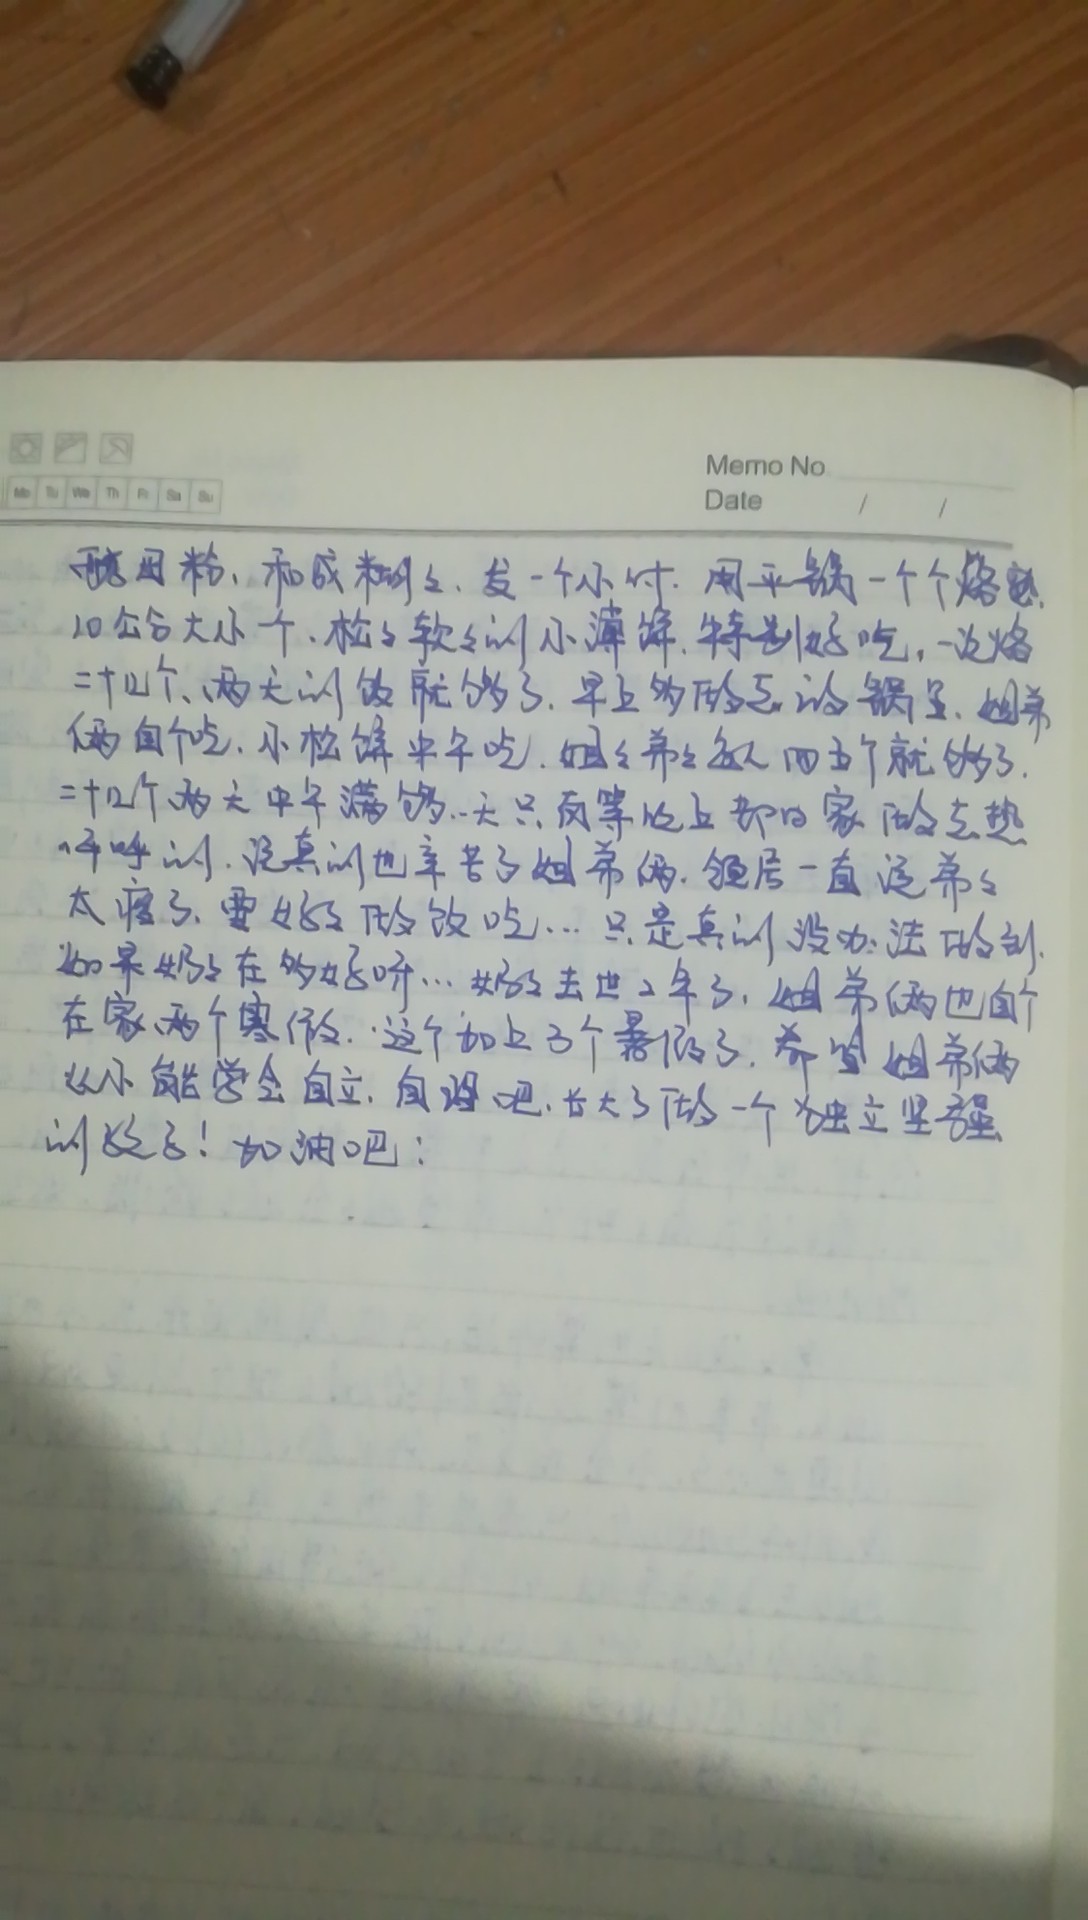 Mo Tu We Th Fr Sa Su
Memo No
Date / /
酵母粉、和成糊糊、发一个小时. 用平锅一个个烙熟.
10公分大小个、松松软软的小薄饼. 特别好吃, 一次烙
二十几个、两天的饭就够了. 早上多做点的锅里、姐弟
俩自个吃. 小松饼中午吃. 姐姐弟弟每人四五个就够了.
二十几个两天中午满够. 一天只有等晚上都回家做点热
呼呼的. 说真的也辛苦了姐弟俩. 邻居一直说弟弟
太瘦了、要好好做饭吃... 只是真的没办法做到.
如果奶奶在多好呀... 奶奶去世2年了, 姐弟俩也自个
在家、两个寒假. 这个加上3个暑假了. 希望姐弟俩
从小能学会自立. 自理吧. 长大了做一个独立坚强
的孩子! 加油吧: